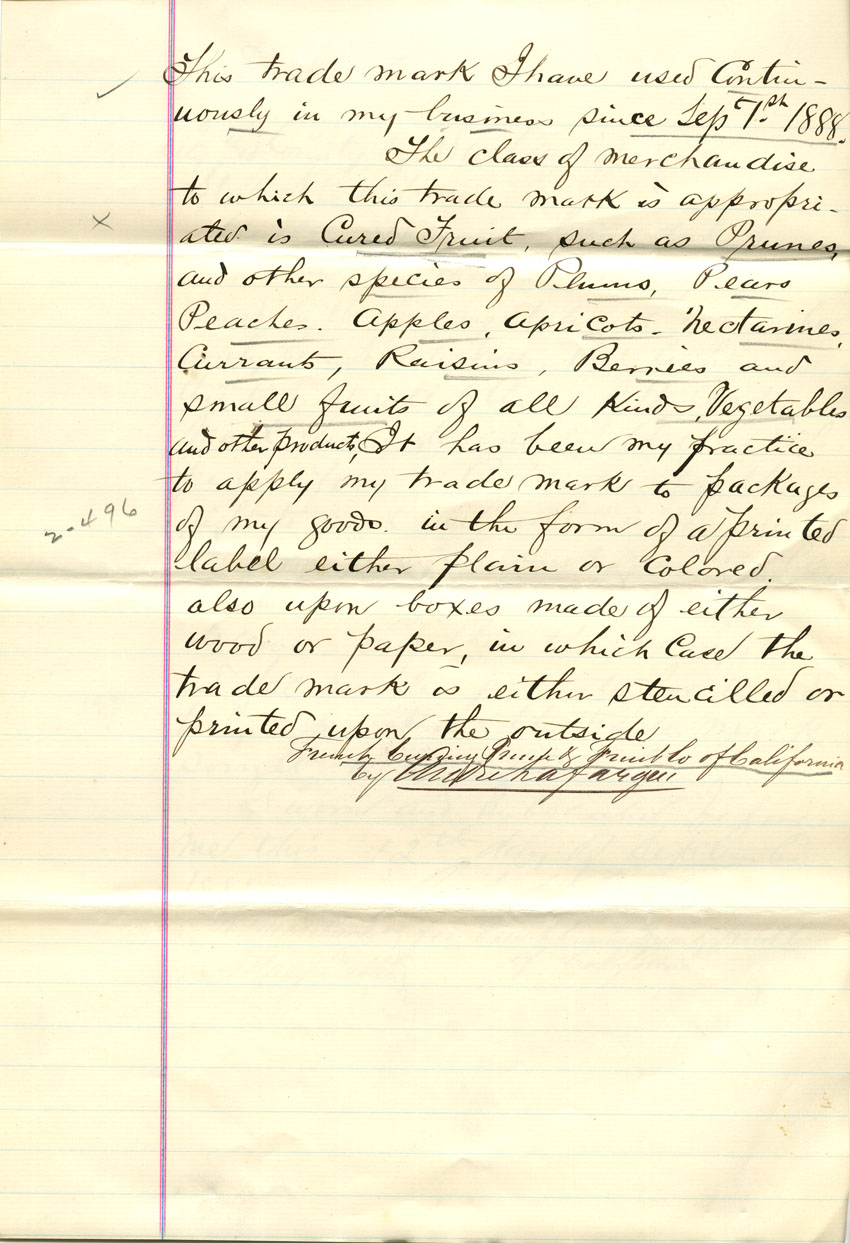 This trade mark I have used Contin-
uously in my business since Sept 1st 1888.
The class of merchandise
to which this trade mark is appropri-
ated is Cured Fruit, such as Prunes,
and other species of Plums, Pears
Peaches. Apples, Apricots - Nectarines,
Currants, Raisins, Berries and
small fruits of all Kinds, Vegetables
and other products, It has been my practice
to apply my trade mark to packages
2-496
of my goods. in the form of a printed
label either plain or Colored.
also upon boxes made of either
wood or paper, in which Case the
trade mark is either stencilled or
printed upon the outside
French Curing Prune & Fruit Co of California
by